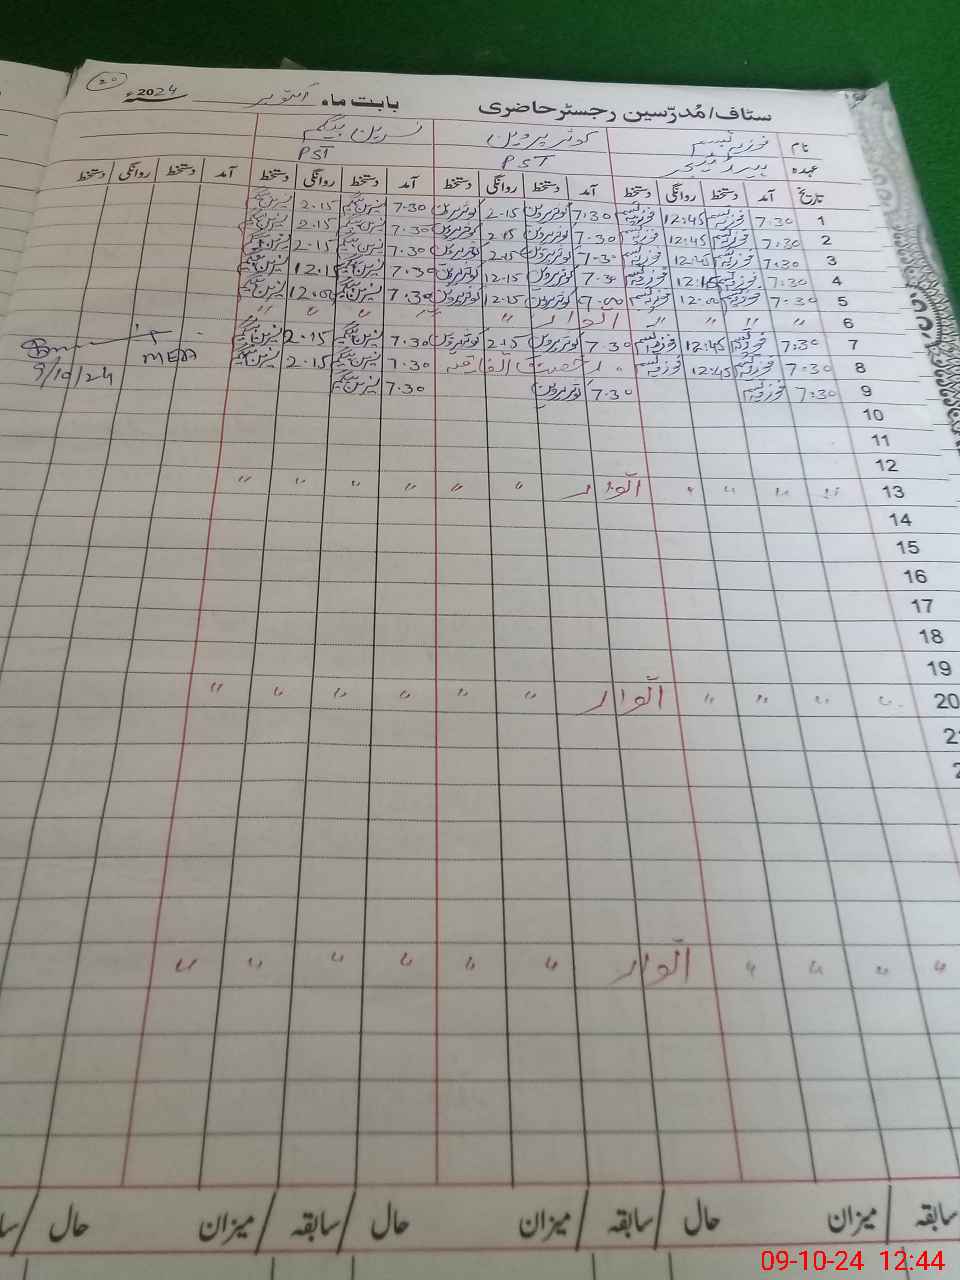 20
ستاف/مُدرّسین رجسٹر حاضری بابت ماہ اکتوبر 2024ء
نام فوزیہ تبسم کوثر پروین نسرین بیگم
عہدہ PST PST
تاریخ آمد دستخط روانگی دستخط آمد دستخط روانگی دستخط آمد دستخط روانگی دستخط آمد دستخط روانگی دستخط
1 7:30 فوزیہ تبسم 12:45 فوزیہ تبسم 7:30 کوثر پروین 2.15 کوثر پروین 7.30 نسرین بیگم 2.15 نسرین بیگم
2 7:30 فوزیہ تبسم 12:45 فوزیہ تبسم 7.30 کوثر پروین 2.15 کوثر پروین 7.30 نسرین بیگم 2.15 نسرین بیگم
3 7:30 فوزیہ تبسم 12:45 فوزیہ تبسم 7.30 کوثر پروین 2.15 کوثر پروین 7.30 نسرین بیگم 2.15 نسرین بیگم
4 7:30 فوزیہ تبسم 12:15 فوزیہ تبسم 7.30 کوثر پروین 12.15 کوثر پروین 7.30 نسرین بیگم 12.15 نسرین بیگم
5 7:30 فوزیہ تبسم فوزیہ تبسم کوثر پروین 12.15 کوثر پروین 7.30 نسرین بیگم نسرین بیگم
6 " " " " اتوار " " " " "
7 7:30 فوزیہ تبسم 12:45 فوزیہ تبسم 7.30 کوثر پروین 2.15 کوثر پروین 7.30 نسرین بیگم 2.15 نسرین بیگم
8 7:30 فوزیہ تبسم 12:45 فوزیہ تبسم رخصت اتفاقیہ 7.30 نسرین بیگم 2.15 نسرین بیگم
9 7:30 فوزیہ تبسم 7.30 کوثر پروین 7.30 نسرین بیگم
MEA
9/10/24
10
11
12
13 " " " " اتوار " " " " " "
14
15
16
17
18
19
20 " " " " اتوار " " " " " "
2
2
" " " " اتوار " " " " " "
سابقہ میزان حال سابقہ میزان حال سابقہ میزان حال
09-10-24 12:44